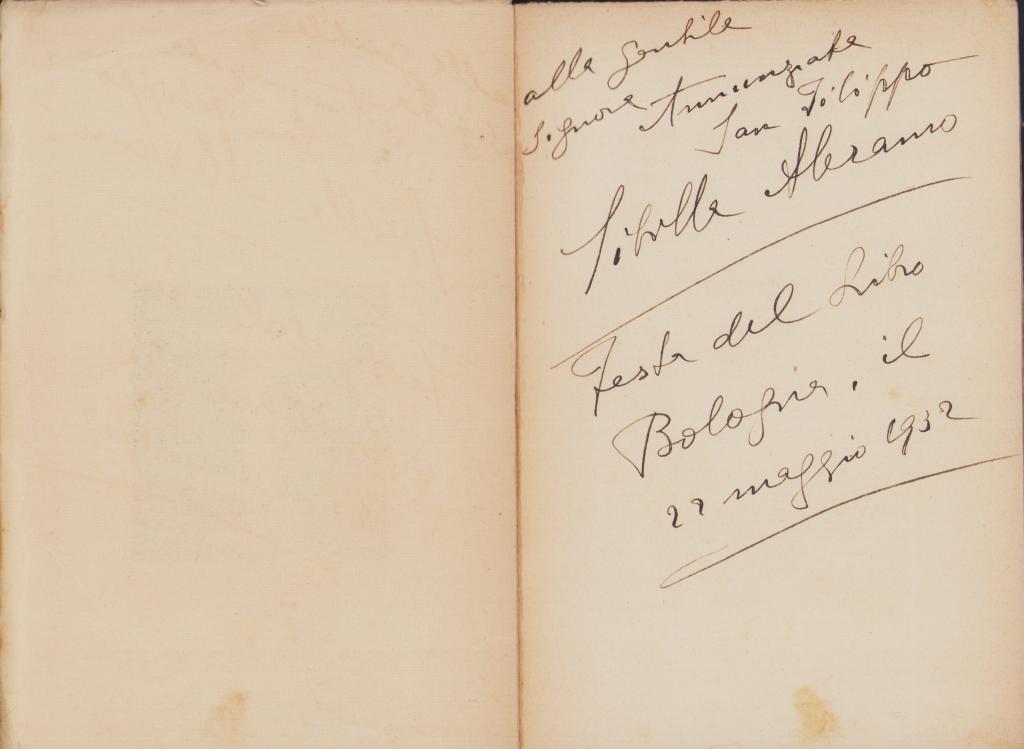 alla gentile
Signora Annunziata
San Filippo
Sibilla Aleramo
Festa del Libro
Bologna, il
22 maggio 1932